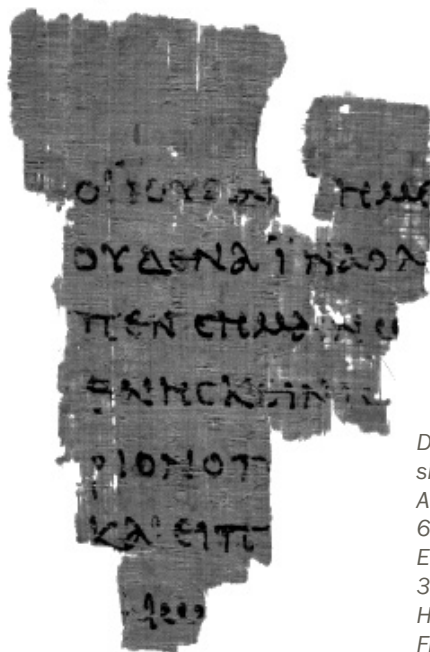 ΟΙ ΪΟΥΔΑΙ ΗΜΕ
ΟΥΔΕΝΑ ΪΝΑ Ο Λ
ΠΕΝ ϹΗΜΑΙΝΩ
ΘΝΗϹΚΕΙΝ
ΡΙΟΝ Ο Π
ΚΑΙ ΕΙΠ
D
A
6
E
3
H